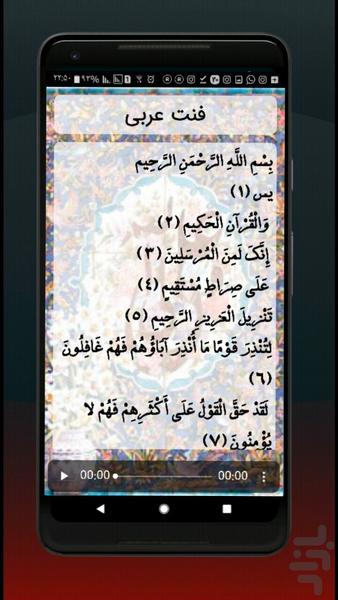 ۲۲:۵۰ ۹۲%
فنت عربی
بِسْمِ اللَّهِ الرَّحْمَنِ الرَّحِيمِ
يس (۱)
وَالْقُرْآنِ الْحَكِيمِ (۲)
إِنَّكَ لَمِنَ الْمُرْسَلِينَ (۳)
عَلَى صِرَاطٍ مُسْتَقِيمٍ (۴)
تَنْزِيلَ الْعَزِيزِ الرَّحِيمِ (۵)
لِتُنْذِرَ قَوْمًا مَا أُنْذِرَ آبَاؤُهُمْ فَهُمْ غَافِلُونَ
(۶)
لَقَدْ حَقَّ الْقَوْلُ عَلَى أَكْثَرِهِمْ فَهُمْ لا
يُؤْمِنُونَ (۷)
00:00 00:00
بازار